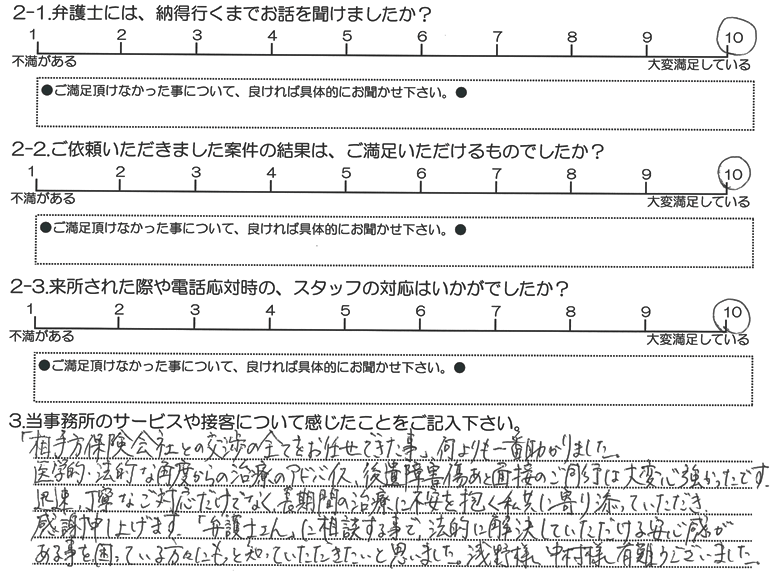 2-1.弁護士には、納得行くまでお話を聞けましたか？
1 2 3 4 5 6 7 8 9 10
不満がある 大変満足している
●ご満足頂けなかった事について、良ければ具体的にお聞かせ下さい。●
2-2.ご依頼いただきました案件の結果は、ご満足いただけるものでしたか？
1 2 3 4 5 6 7 8 9 10
不満がある 大変満足している
●ご満足頂けなかった事について、良ければ具体的にお聞かせ下さい。●
2-3.来所された際や電話応対時の、スタッフの対応はいかがでしたか？
1 2 3 4 5 6 7 8 9 10
不満がある 大変満足している
●ご満足頂けなかった事について、良ければ具体的にお聞かせ下さい。●
3.当事務所のサービスや接客について感じたことをご記入下さい。
「相手方保険会社との交渉の全てをお任せできた事」何よりも一番助かりました。
医学的・法的な角度からの治療のアドバイス、後遺障害傷あと面接のご同行は大変心強かったです。
迅速、丁寧なご対応だけでなく、長期間の治療に不安を抱く私共に寄り添っていただき
感謝申し上げます。「弁護士さん」に相談する事で、法的に解決していただける安心感が
ある事を困っている方々にもっと知っていただきたいと思いました。浅野様、中村様、有難うございました。